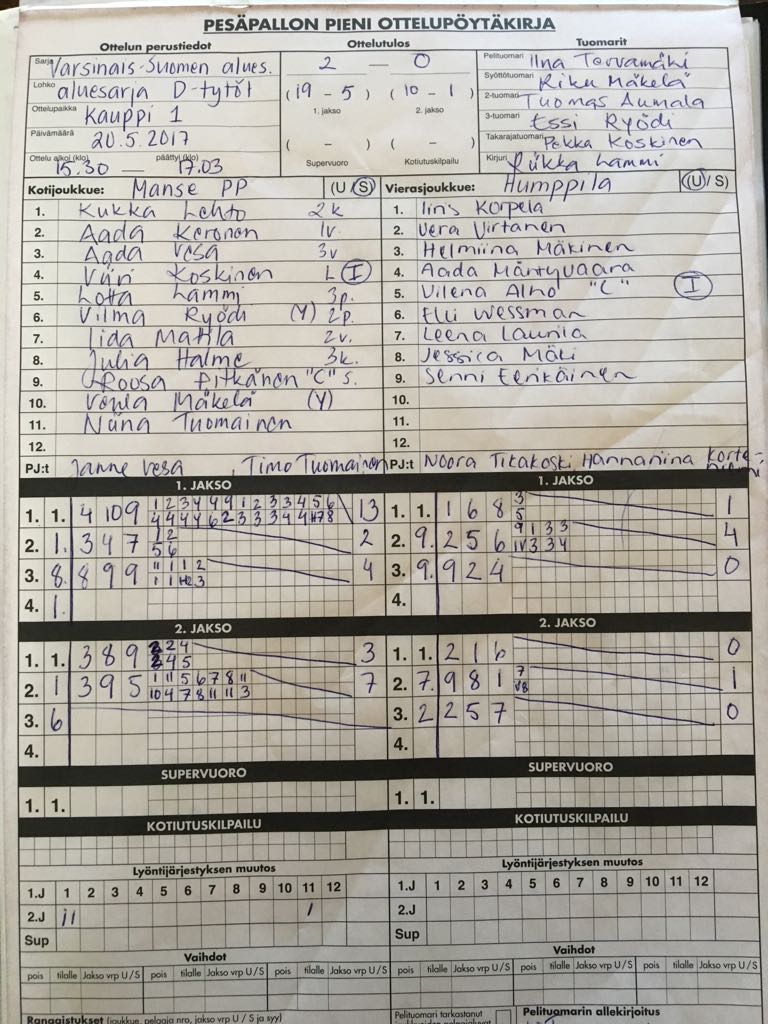 PESÄPALLON PIENI OTTELUPÖYTÄKIRJA
Ottelun perustiedot
Sarja Varsinais-Suomen alues.
Lohko aluesarja D-tytöt
Ottelupaikka Kauppi 1
Päivämäärä 20.5.2017
Ottelu alkoi (klo) päättyi (klo)
15.30 — 17.03
Ottelutulos
2 — 0
(19 - 5) (10 - 1)
1. jakso 2. jakso
( - ) ( - )
Supervuoro Kotiutuskilpailu
Tuomarit
Pelituomari Iina Torvamäki
Syöttötuomari Riku Mäkelä
2-tuomari Tuomas Aumala
3-tuomari Essi Ryödi
Takarajatuomari Pekka Koskinen
Kirjuri Riikka Lammi
Kotijoukkue: Manse PP (U / S)
1. Kukka Lehto 2k
2. Aada Keronen 1v
3. Aada Vesa 3v
4. Viivi Koskinen L I
5. Lotta Lammi 3p.
6. Vilma Ryödi (Y) 2p.
7. Iida Mattila 2v.
8. Julia Halme 3k.
9. Roosa Pitkänen "C" s.
10. Mäkelä (Y)
11. Niina Tuomainen
12.
PJ:t Janne Vesa, Timo Tuomainen
Vierasjoukkue: Humppila (U / S)
1. Iiris Korpela
2. Vera Virtanen
3. Helmiina Mäkinen
4. Aada Mäntyvaara
5. Vilena Alho "C" I
6. Elli Wessman
7. Leena Laurila
8. Jessica Mäki
9. Senni Eerikäinen
10.
11.
12.
PJ:t Noora Tikakoski, Hannaniina Korte-
1. JAKSO
1. 1. 4 10 9 13
2. 1. 3 4 7 1 2 2
5 6
3. 8. 8 9 9 4
4. 1.
1. JAKSO
1. 1. 1 6 8 3 1
5
2. 9. 2 5 6 9 1 3 3 4
1V 3 3 4
3. 9. 9 2 4 0
4.
2. JAKSO
1. 1. 3 8 9 2 2 4 3
2 4 5
2. 1 3 9 5 1 11 5 6 7 8 11 7
10 4 7 8 11 11 3
3. 6
4.
2. JAKSO
1. 1. 2 1 6 0
2. 7. 9 8 1 7 1
V8
3. 2 2 5 7 0
4.
SUPERVUORO
1. 1.
SUPERVUORO
1. 1.
KOTIUTUSKILPAILU
KOTIUTUSKILPAILU
Lyöntijärjestyksen muutos
1.J 1 2 3 4 5 6 7 8 9 10 11 12
2.J 11 1
Sup
Lyöntijärjestyksen muutos
1.J 1 2 3 4 5 6 7 8 9 10 11 12
2.J
Sup
Vaihdot
pois tilalle Jakso vrp U / S pois tilalle Jakso vrp U / S pois tilalle Jakso vrp U / S
Vaihdot
pois tilalle Jakso vrp U / S pois tilalle Jakso vrp U / S pois tilalle Jakso vrp U / S
Rangaistukset (joukkue, pelaaja nro, jakso vrp U / S ja syy)
Pelituomari tarkastanut
Pelituomarin allekirjoitus